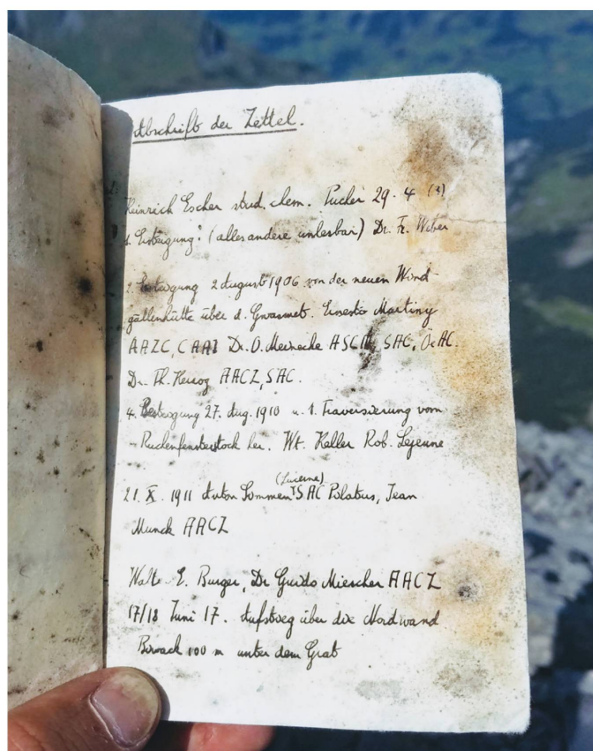 Abschrift der Zettel.
Heinrich Escher stud. chem. 29. 4
1. Besteigung? (alles andere unlesbar) Dr. Fr. Weber
2. Besteigung 2 August 1906 von der neuen Wind-
gällenhütte über d. Gwasmet. Ernesto Martiny
AAZC, CAAI Dr. O. Meinecke SAC, ÖAC.
Dr. Th. Herzog AACZ, SAC.
4. Besteigung 27. Aug. 1910 u. 1. Traversierung vom
Ruchenfensterstock her. W. Keller Rob. Lejeune
(Lucerne)
21. X. 1911 Anton SAC Pilatus, Jean
Munck AACZ
E. Burger, Dr Guido Miescher AACZ
17/18 Juni 17. Aufstieg über die Nordwand
Biwack 100 m unter dem Grat